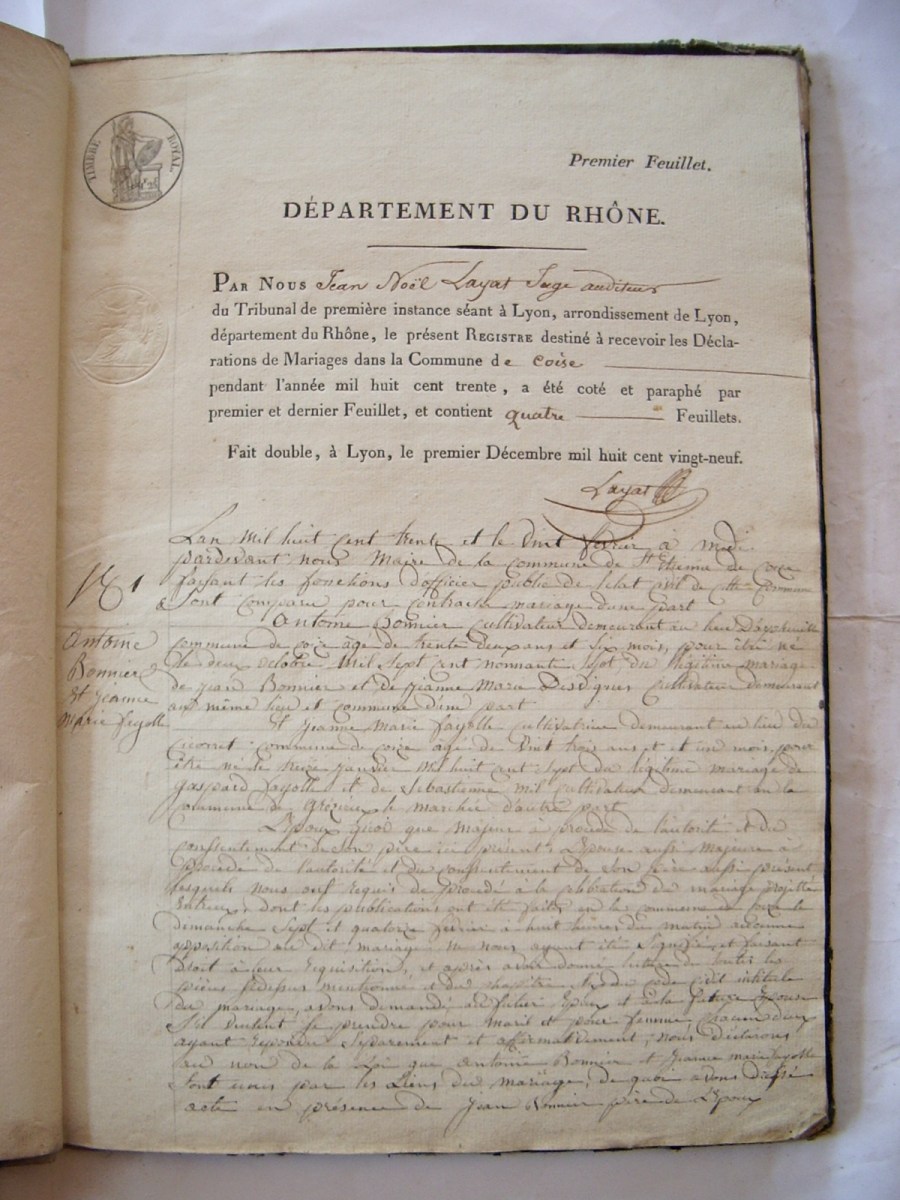 TIMBRE ROYAL.
Premier Feuillet.
DÉPARTEMENT DU RHÔNE.
PAR NOUS Jean Noël Layat Juge auditeur
du Tribunal de première instance séant à Lyon, arrondissement de Lyon,
département du Rhône, le présent REGISTRE destiné à recevoir les Décla-
rations de Mariages dans la Commune de Coise
pendant l'année mil huit cent trente, a été coté et paraphé par
premier et dernier Feuillet, et contient quatre Feuillets.
Fait double, à Lyon, le premier Décembre mil huit cent vingt-neuf.
Layat
Lan mil huit cent trente et le vint février à midi
pardevant nous Maire de la commune de St Etienne de coize
faisant les fonctions d'officier public de l'état civil de dte Commune
Sont comparu pour contracter mariage d'une part
N 1
Antoine
Bonnier
Et Jeanne
Marie fayolle
Antoine Bonnier cultivateur demeurant au lieu
commune de coize âgé de trente deux ans et six mois, pour être né
le deux octobre mil sept cent nonnante sept du légitime mariage
de jean Bonnier et de jeanne Marie cultivateur demeurant
au même lieu et commune d'une part
Et jeanne Marie fayolle cultivatrice demeurant au lieu du
commune de coize âgé de vint trois ans et un mois, pour
être né le treize janvier mil huit cent sept du légitime mariage de
gaspard fayolle et de Sebastienne cultivateur demeurant en la
commune de Grézieu le marchée d'autre part
L'Epoux quoi que majeur à procédé de l'autorité et du
consentement de son père ici présent L'Epouse aussi majeure à
procédé de l'autorité et du consentement de son père aussi présent
lesquels nous ont requis de procédé à la célébration du mariage projetté
entreux, dont les publications ont été faites en la commune de coize le
dimanche sept et quatorze février à huit heures du matin aucunne
opposition au dit mariage ne nous ayant été signifié, et faisant
droit à leur requisition, et après avoir donné lecture de toutes les
pièces sidessus mentionné et du chapitre du code civil intitulé
du mariage, avons demandé au futur Epoux et à la future Epouse
s'il veulent se prendre pour mari et pour femme chacun deux
ayant repondu séparement et affirmativement, nous déclarons
au nom de la Loi que antoine Bonnier et jeanne marie fayolle
sont unis par les Liens du mariage, de quoi avons dressé
acte en présence de jean Bonnier père de L'Epoux